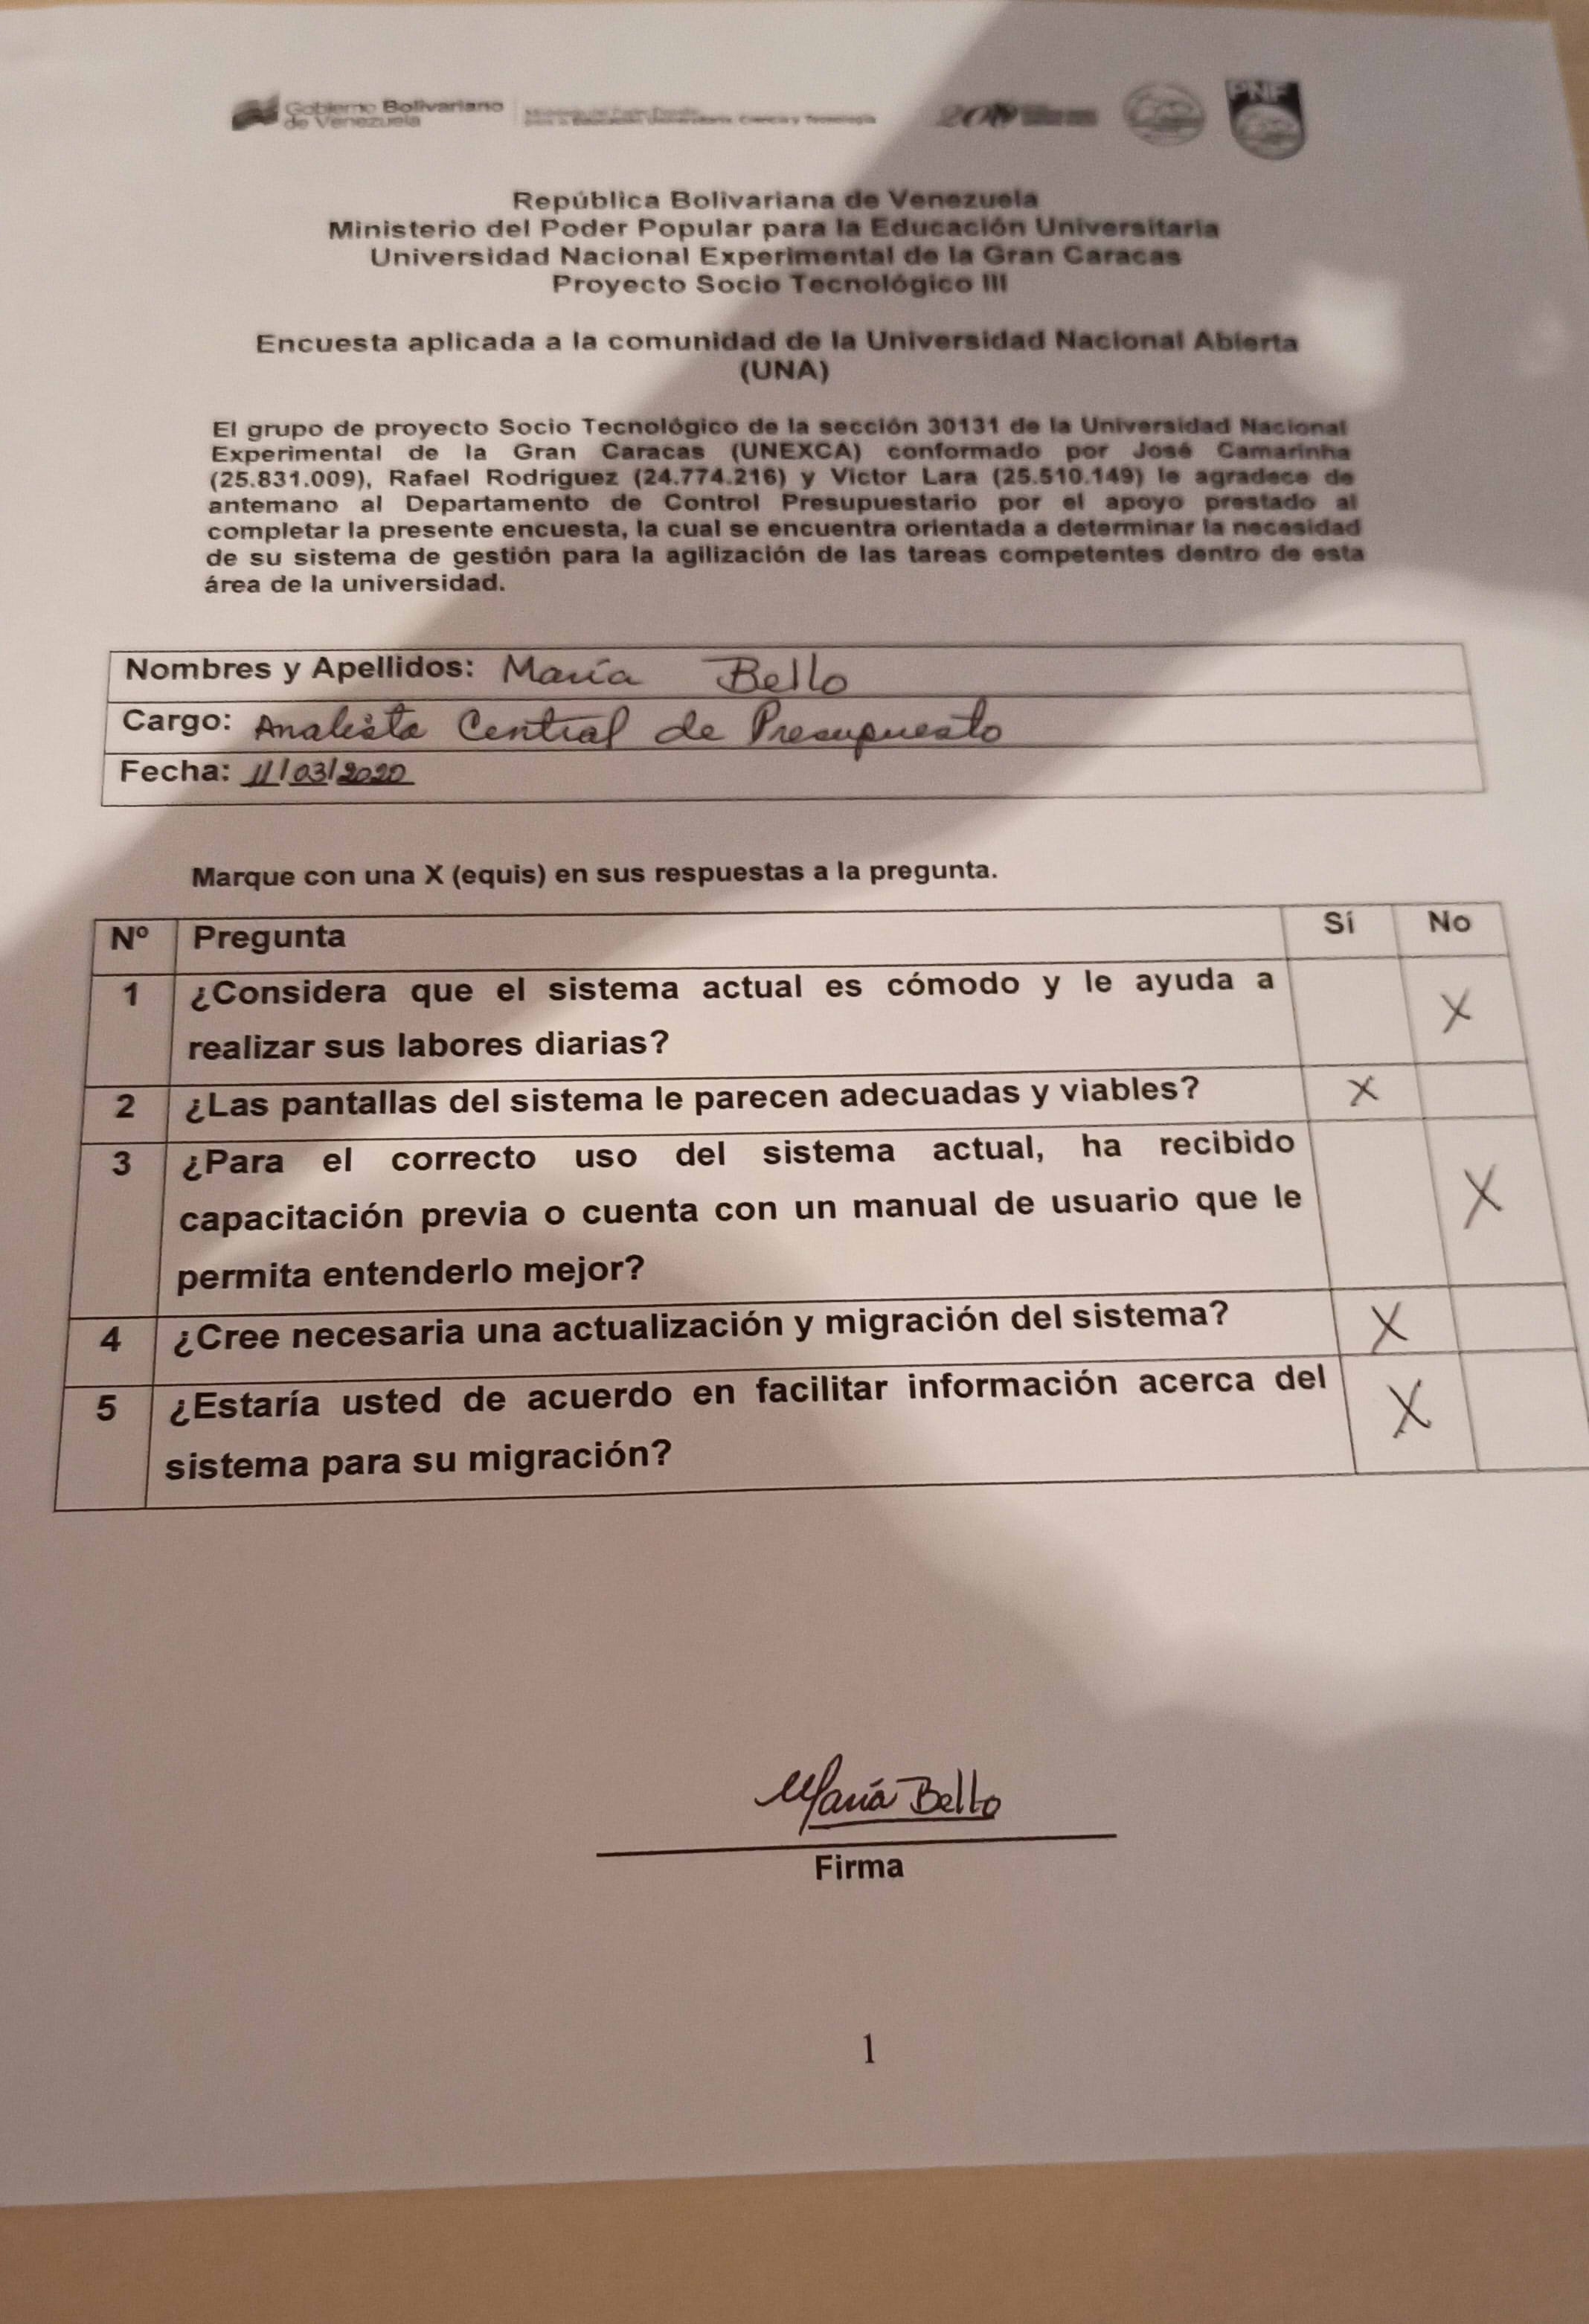 Gobierno Bolivariano
de Venezuela
Universitaria, Ciencia y Tecnología
200
PNF
República Bolivariana de Venezuela
Ministerio del Poder Popular para la Educación Universitaria
Universidad Nacional Experimental de la Gran Caracas
Proyecto Socio Tecnológico III
Encuesta aplicada a la comunidad de la Universidad Nacional Abierta
(UNA)
El grupo de proyecto Socio Tecnológico de la sección 30131 de la Universidad Nacional
Experimental de la Gran Caracas (UNEXCA) conformado por José Camarinha
(25.831.009), Rafael Rodríguez (24.774.216) y Victor Lara (25.510.149) le agradece de
antemano al Departamento de Control Presupuestario por el apoyo prestado al
completar la presente encuesta, la cual se encuentra orientada a determinar la necesidad
de su sistema de gestión para la agilización de las tareas competentes dentro de esta
área de la universidad.
Nombres y Apellidos: María Bello
Cargo: Analista Central de Presupuesto
Fecha: 11/03/2020
Marque con una X (equis) en sus respuestas a la pregunta.
Nº Pregunta Sí No
1 ¿Considera que el sistema actual es cómodo y le ayuda a
realizar sus labores diarias? X
2 ¿Las pantallas del sistema le parecen adecuadas y viables? X
3 ¿Para el correcto uso del sistema actual, ha recibido
capacitación previa o cuenta con un manual de usuario que le X
permita entenderlo mejor?
4 ¿Cree necesaria una actualización y migración del sistema? X
5 ¿Estaría usted de acuerdo en facilitar información acerca del X
sistema para su migración?
María Bello
Firma
1